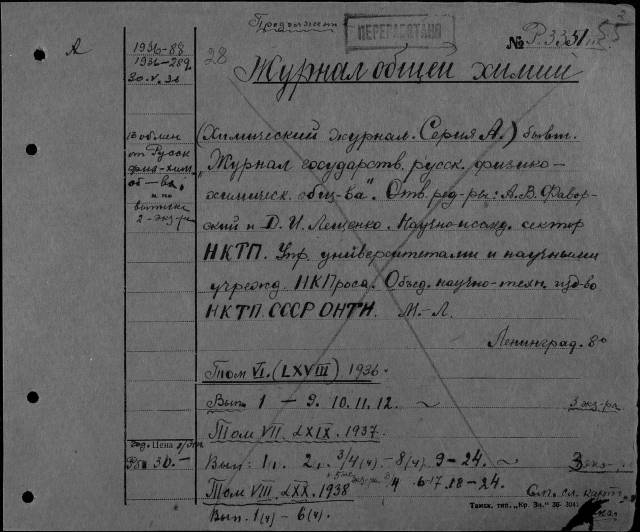 Продолжит
ПЕРЕРАБОТАНО
№ Р.3351
55
28
А
1936-88
1936-289
30.V.36
Журнал общей химии
(Химический журнал. Серия А.) бывш.
"Журнал государств. русск. физико-
химическ. общ-ва". Отв. ред-ры: А.В. Фавор-
ский и Д. И. Лещенко. Научно-исслед. сектор
НКТП. Упр. университетами и научными
учрежд. НКПроса. Объед. научно-техн. изд-во
НКТП СССР ОНТИ. М.-Л.
В обмен
от Русск
физ-хим.
об-ва,
и по
выписке
2-экз-ра
Ленинград. 8°
Том VI. (LXVIII) 1936.
Вып. 1 - 9. 10. 11. 12. ~ 3 экз-ра
Том VII. LXIX. 1937.
год. Цена
Рб 30.-
Вып: 1. 2. 3/4(4) - 8(4) 9-24. ~ 3 экз-ра
Том VIII. LXX. 1938 4 6-17. 18-24.
Вып. 1(4) - 6(4).
См. сл. карт
Томск, тип. „Кр. Зн." 36 304